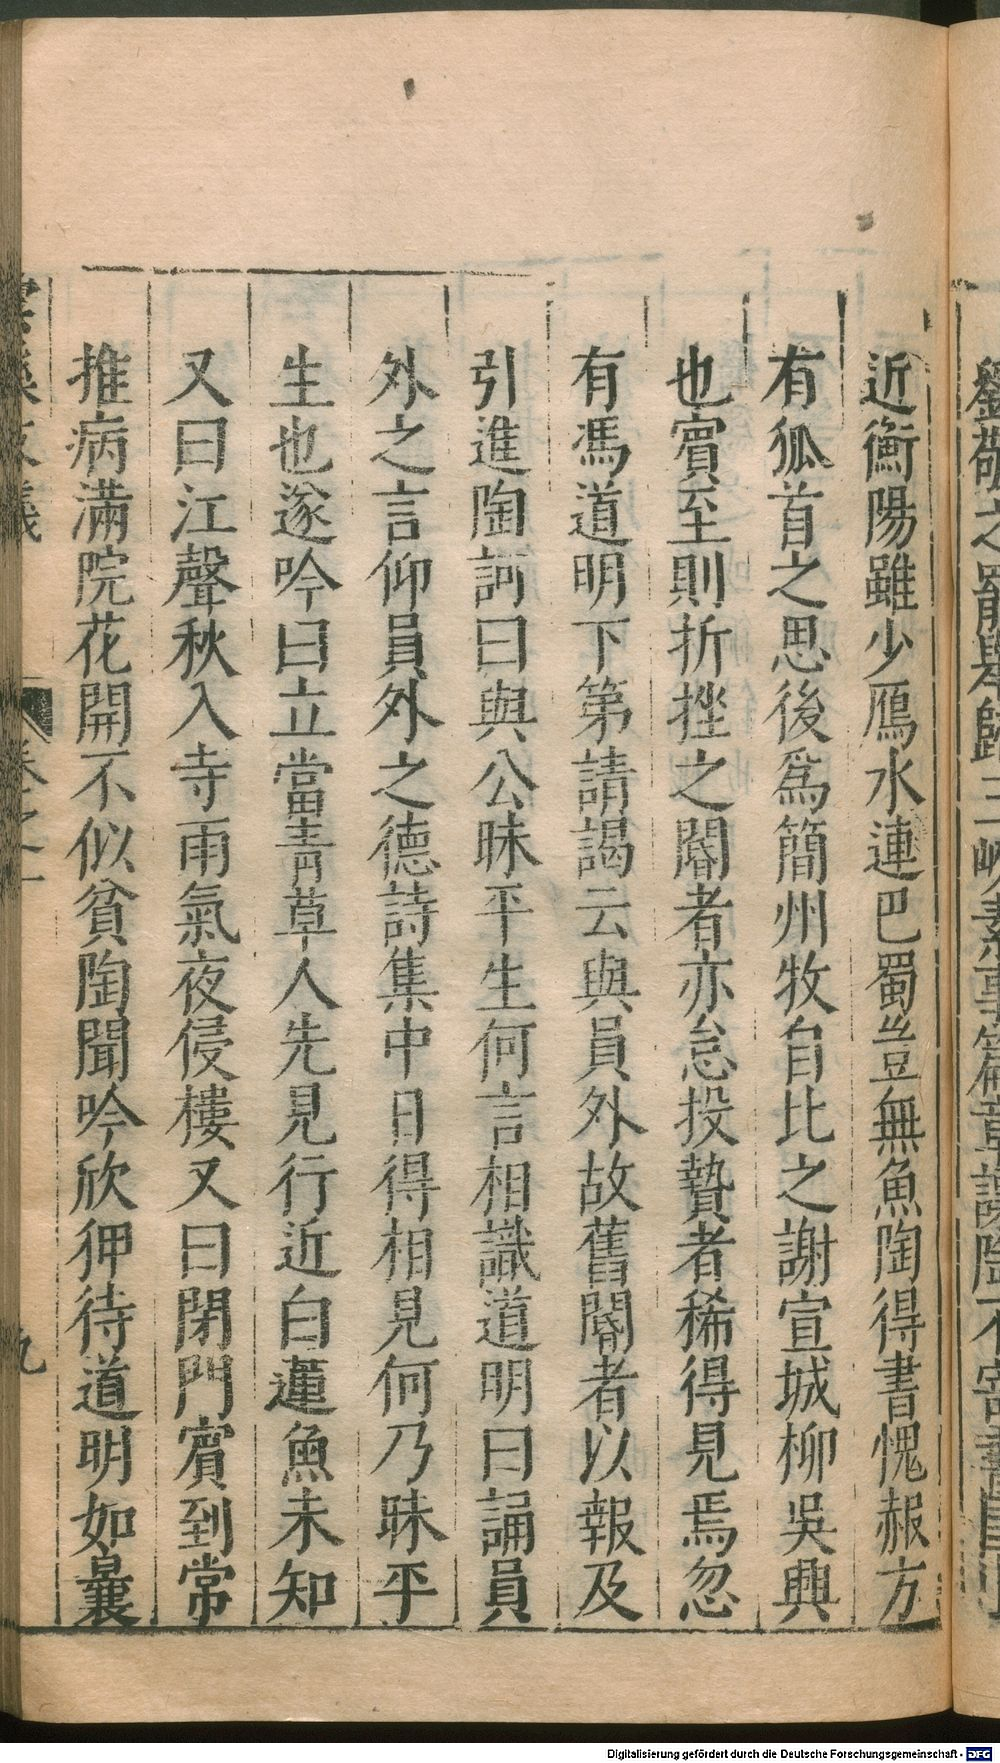 近衡陽雖少鴈水連巴蜀豈無魚陶得書愧赧方
有狐首之思後爲簡州牧自比之謝宣城柳吳興
也賓至則折挫之閽者亦怠投贄者稀得見焉忽
有馮道明下第請謁云與員外故舊閽者以報及
引進陶訶曰與公昧平生何言相識道明曰誦員
外之言仰員外之德詩集中日得相見何乃昧平
生也遂吟曰立當青草人先見行近白蓮魚未知
又曰江聲秋入寺雨氣夜侵樓又曰閉門賓到常
推病滿院花開不似貧陶聞吟欣狎待道明如曩
卷之一
九
Digitalisierung gefördert durch die Deutsche Forschungsgemeinschaft - DFG